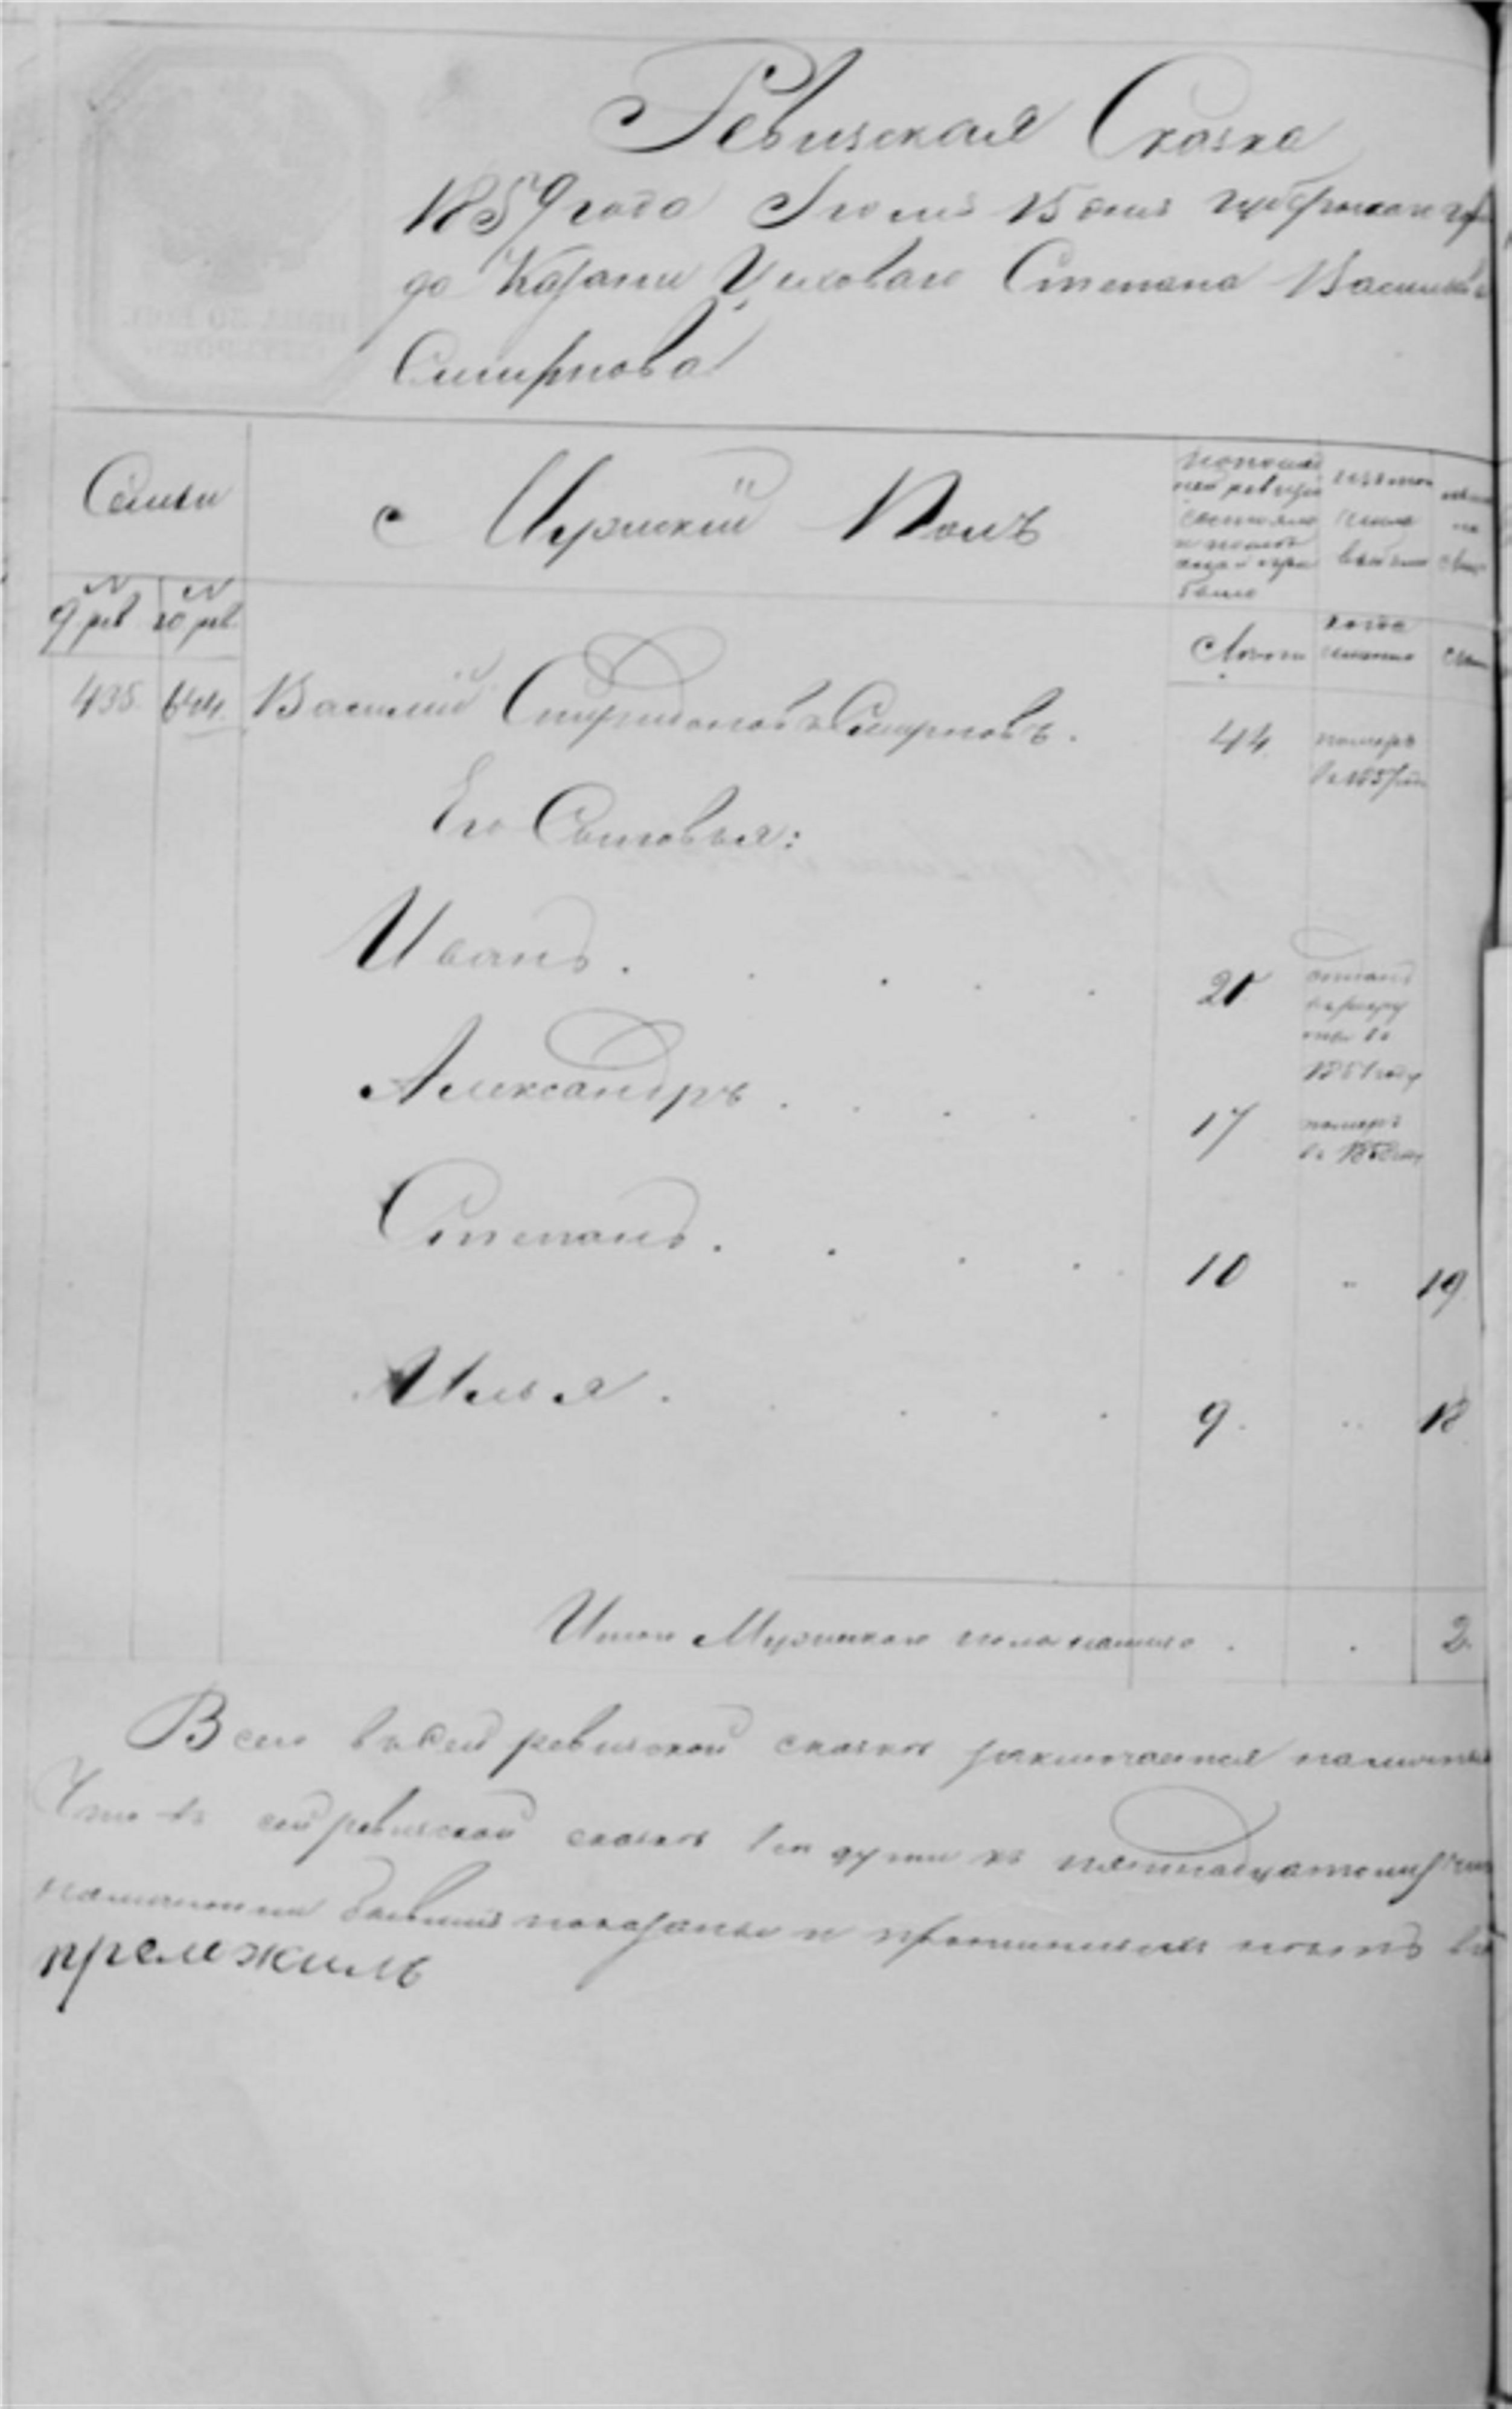 Ревизская Сказка
1859 года Июня 15 дня губернскаго го
да Казани Цеховаго Степана Васильева
Смирнова
Семьи
Мужскій Полъ
По послед
ней ревизіи
состояло
и после
того при
было
изъ того
числа
выбыло
№ №
9 рев 10 рев.
Лета
когда
именно
435. 644. Василій Спиридоновъ Смирновъ. 44 померъ
въ 1857 году
Его Сыновья:
Иванъ. 20 отданъ
въ рекру
ты въ
1851 году
Александръ 17 померъ
въ
Степанъ. 10 " 19
Илья. 9. " 18
Итого Мужескаго пола налицо 2.
Всего въ сей ревизской сказке заключается написанныя
Что въ сей ревизской сказке все души къ пятнадцатому
написанія бывшія показаны и прописныхъ нетъ въ
приложилъ